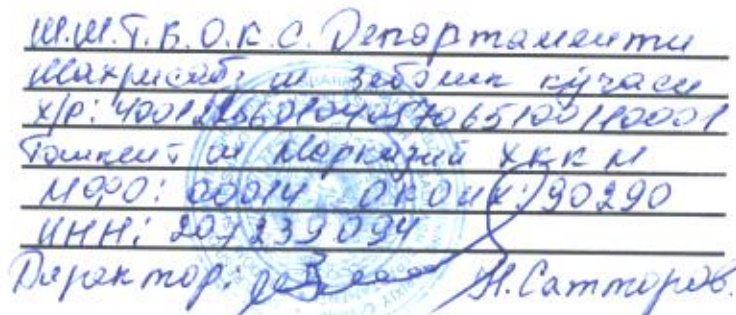 Ш.Ш.Т.Б.О.К.С. Департаменти
Шахрисабз ш Зебозик кўчаси
Х/р: 400122860104057065100110001
Тошкент ш Марказий ХККМ
МФО: 00014 ОКОНХ: 90290
ИНН: 207239094
Директор: Н. Сатторов.